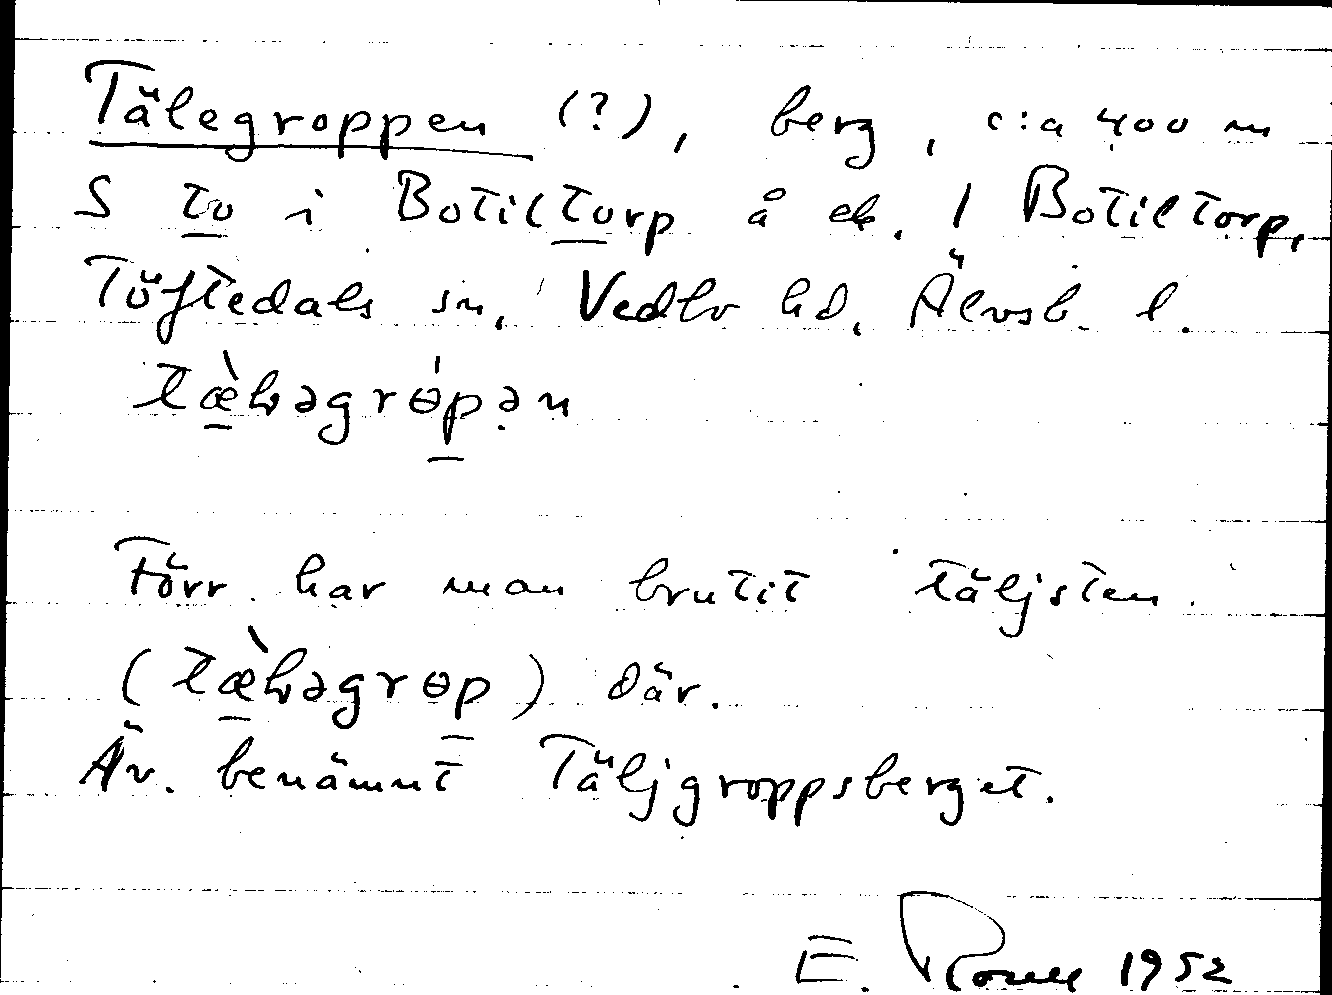 Tälegroppen (?), berg, c:a 400 m
S to i Botiltorp å ek. 1 Botiltorp,
Töftedals sn, Vedbo hd, Älvsb. l.
Förr har man brutit täljsten
där.
Äv. benämnt Täljgroppsberget.
E. 1952